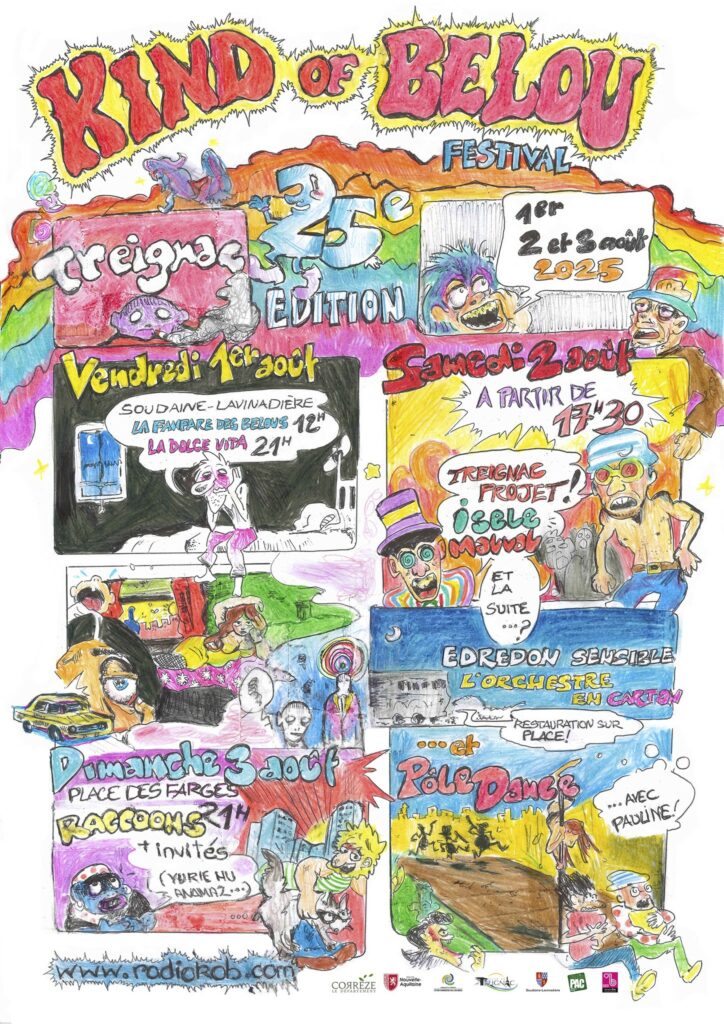 KIND OF BELOU
FESTIVAL
Treignac
25e
EDITION
1er
2 et 3 août
2025
Vendredi 1er août
SOUDAINE-LAVINADIÈRE
LA FANFARE DES BELOUS 12H
LA DOLCE VITA 21H
Samedi 2 août
A PARTIR DE
17H30
TREIGNAC
PROJET!
isele
mauval
ET
LA
SUITE
...?
EDREDON SENSIBLE
L'ORCHESTRE
EN CARTON
RESTAURATION SUR
PLACE!
Dimanche 3 août
PLACE DES FARGES
RACCOONS 21H
+ invités
(YURIE HU
ANAMAZ...)
...et
Pôle Dance
...AVEC
PAULINE!
www.radiokob.com
CORRÈZE
LE DÉPARTEMENT
Nouvelle-
Aquitaine
TREIGNAC
Soudaine-Lavinadière
PAC